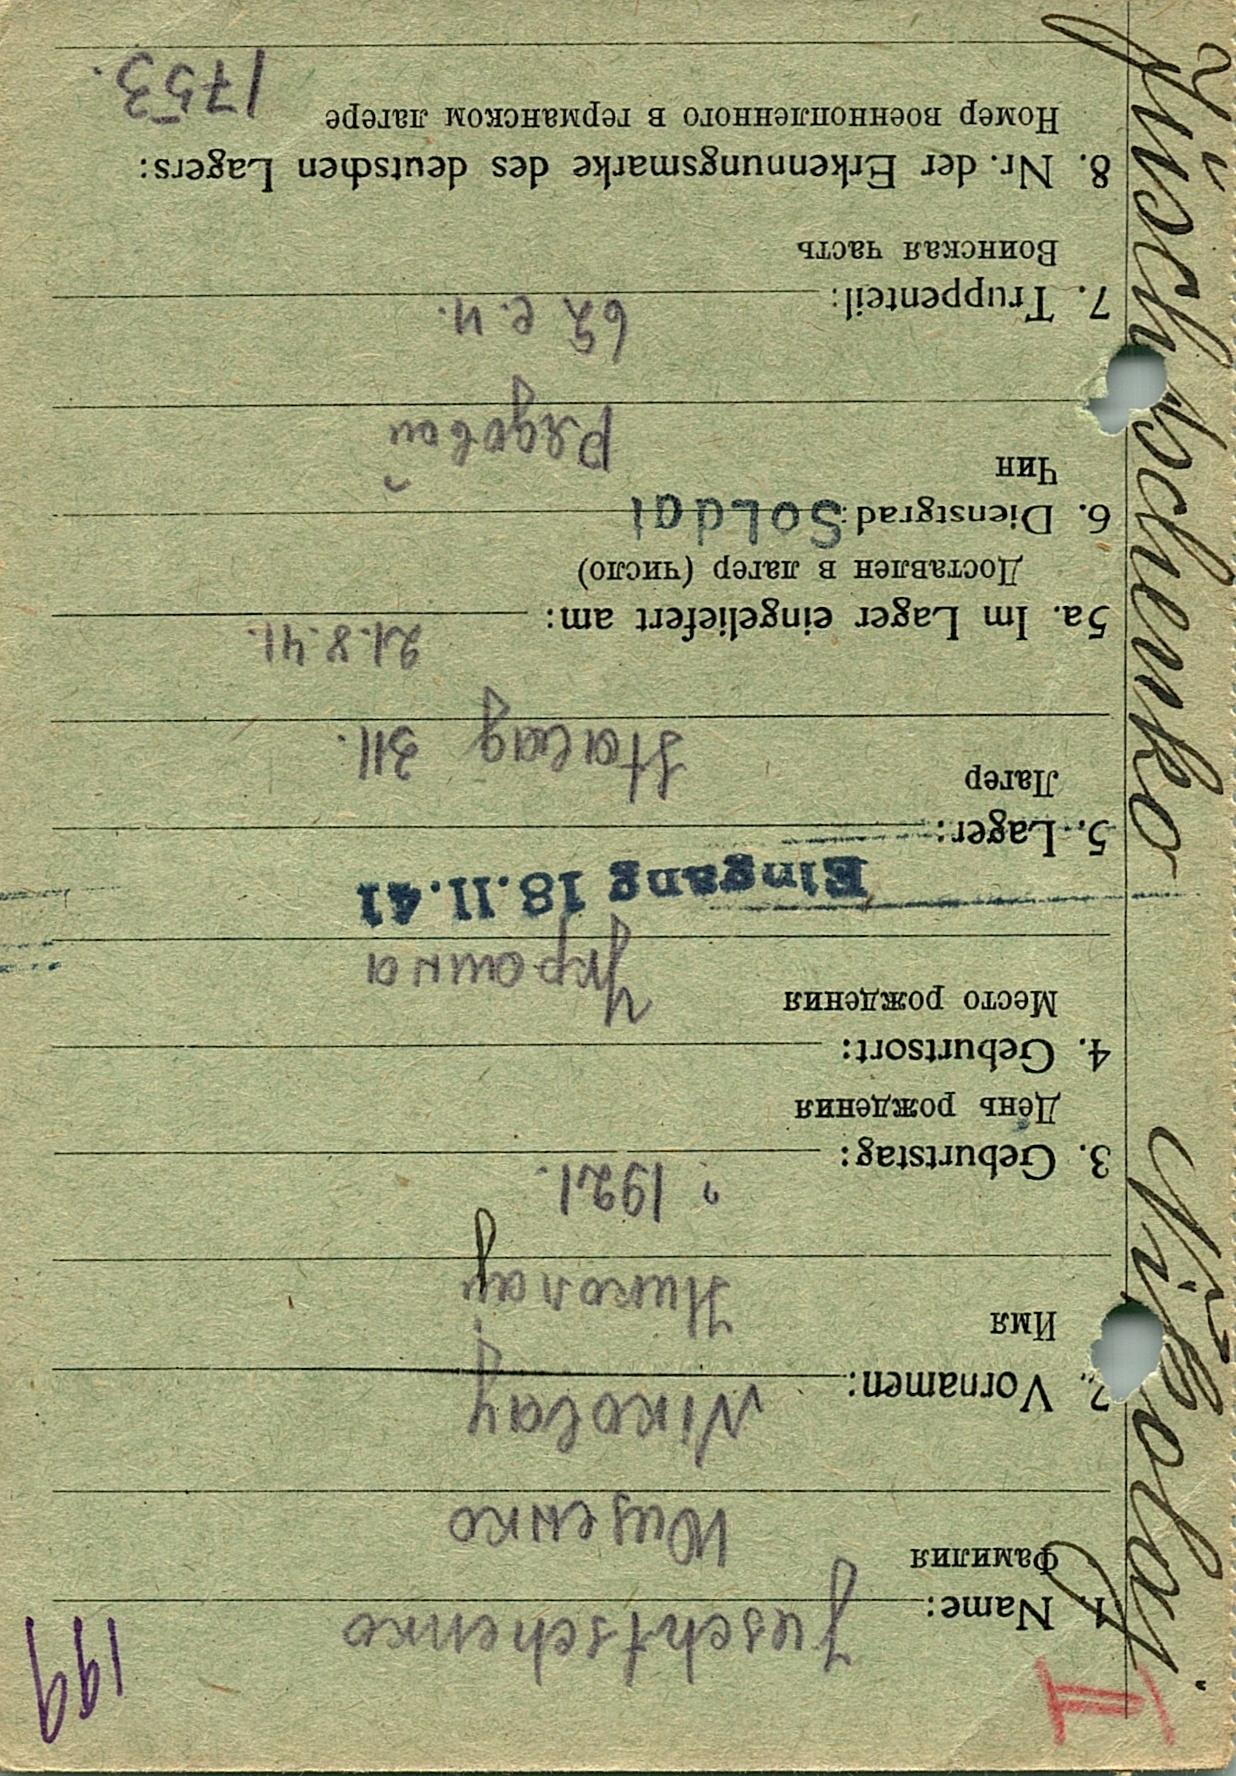 199
II
1. Name: Juschtschenko
Фамилия Ющенко
2. Vornamen: Nikolay
Имя Николау
3. Geburtstag: ? 1921.
День рождения
4. Geburtsort:
Место рождения Украина
Eingang 18.11.41
5. Lager:
Лагер Stalag 311.
5a. Im Lager eingeliefert am: 21.8.41.
Доставлен в лагер (число)
6. Dienstgrad: Soldat
Чин Рядовой
7. Truppenteil: 62 с.п.
Воинская часть
8. Nr. der Erkennungsmarke des deutschen Lagers:
Номер военнопленного в германском лагере 1753.
Jüschtschenko Nikolaj.